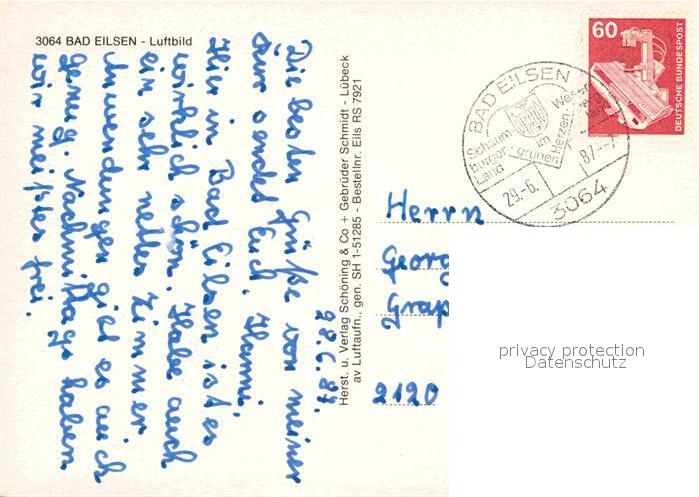 3064 BAD EILSEN - Luftbild
28.6.87.
Die besten Grüße von meiner
Kur sendet Euch, Hanni.
Hier in Bad Eilsen ist es
wirklich schön. Habe auch
ein sehr nettes Zimmer
Anwendungen gibt es auch
genug. Nachmittags haben
wir meistes frei.
Herst. u. Verlag Schöning & Co + Gebrüder Schmidt - Lübeck
av Luftaufn., gen. SH 1-51285 - Bestellnr. Eils RS 7921
60
DEUTSCHE BUNDESPOST
BAD EILSEN
Schaum-
burger
Land
im
grünen
Herzen
29.-6. 87.--7
3064
Herrn
Georg
Grap
2120
privacy protection
Datenschutz